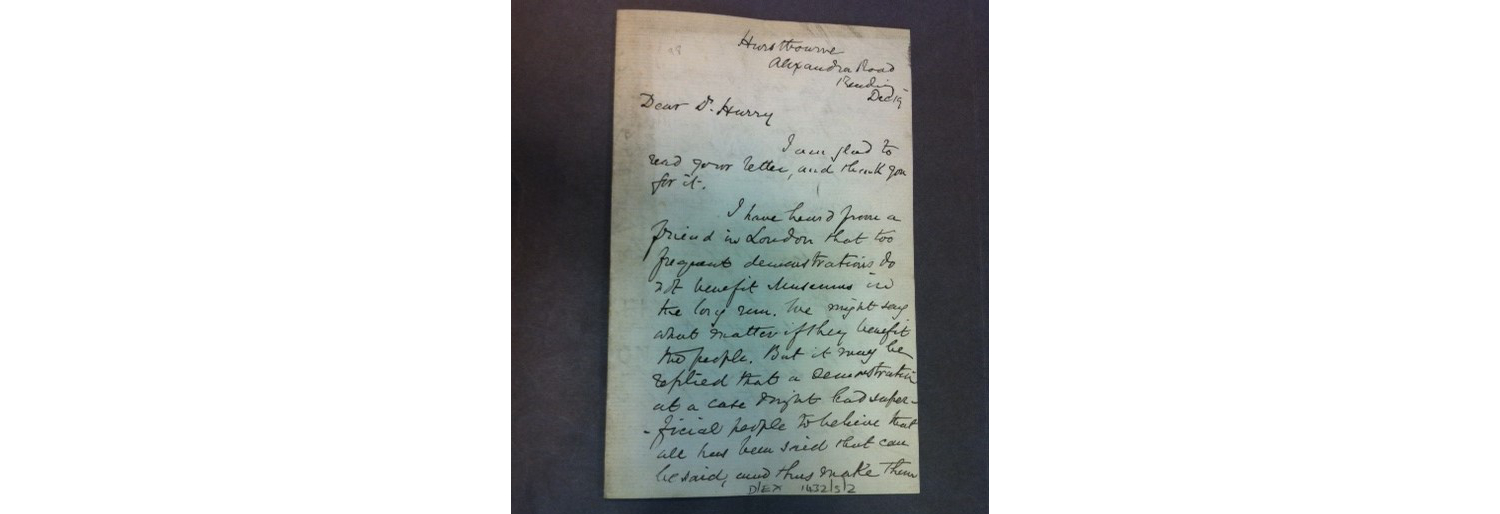 Hurstbourne
Alexandra Road
Reading
Dec 19
Dear Dr. Hurry
I am glad to
read your letter, and thank you
for it.
I have heard from a
friend in London that too
frequent demonstrations do
not benefit Museums in
the long run. We might say
what matter if they benefit
the people. But it may be
replied that a demonstration
at a case might lead super-
-ficial people to believe that
all has been said that can
be said, and thus make them
D/EX 1432/5/2